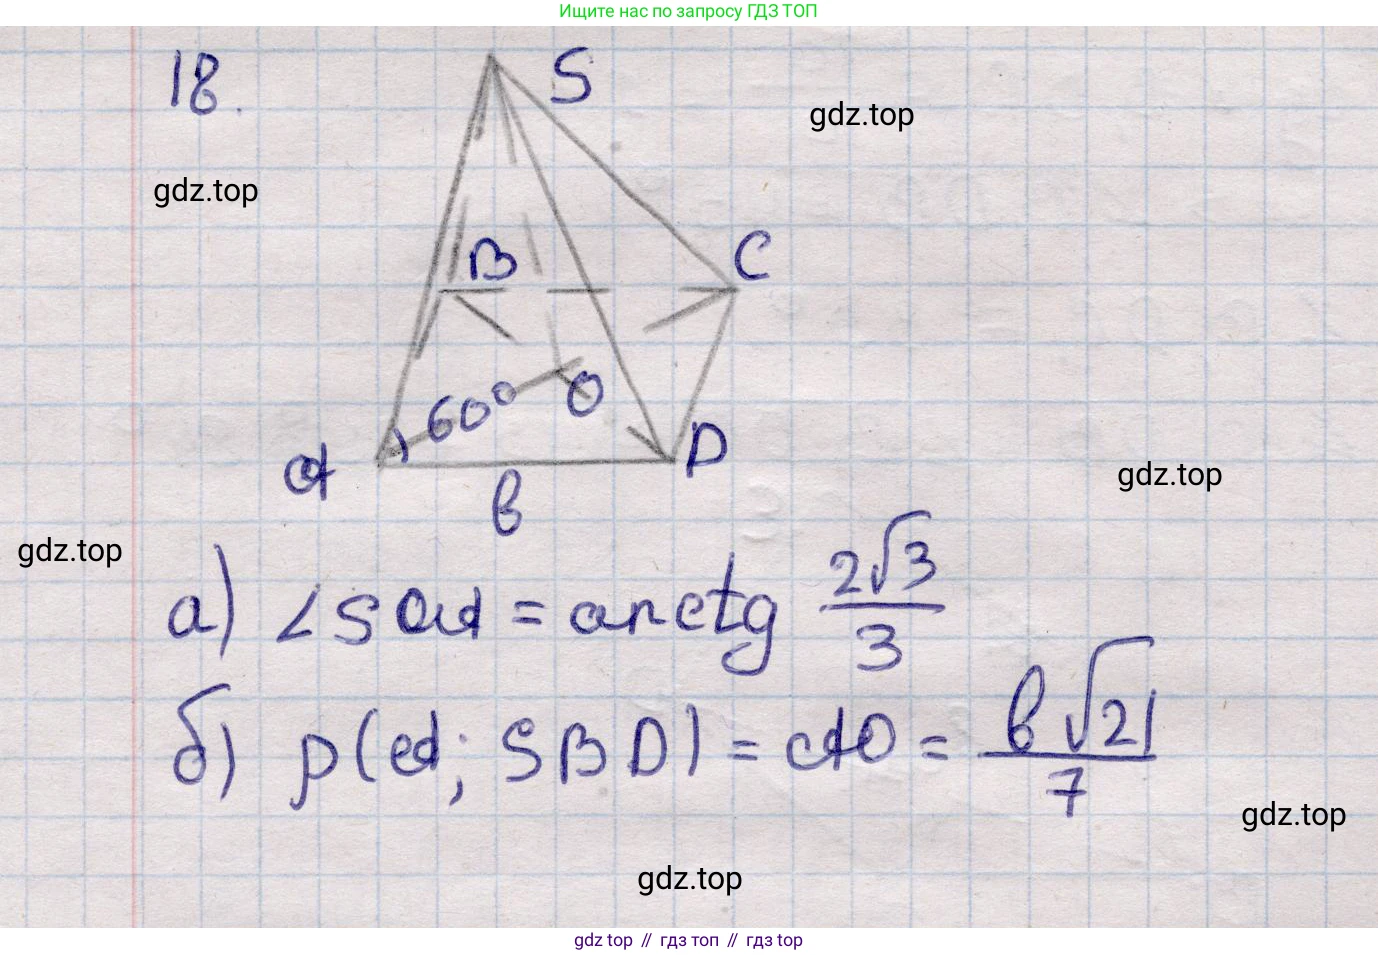 Ищите нас по запросу ГДЗ ТОП
18.
S
gdz.top
gdz.top
B
C
60°
O
A
D
gdz.top
в
gdz.top
а) ∠SOA = arctg 2√3/3
б) ρ(A; SBD) = AO = в√21/7
gdz.top
gdz.top
gdz top // гдз топ // gdz top